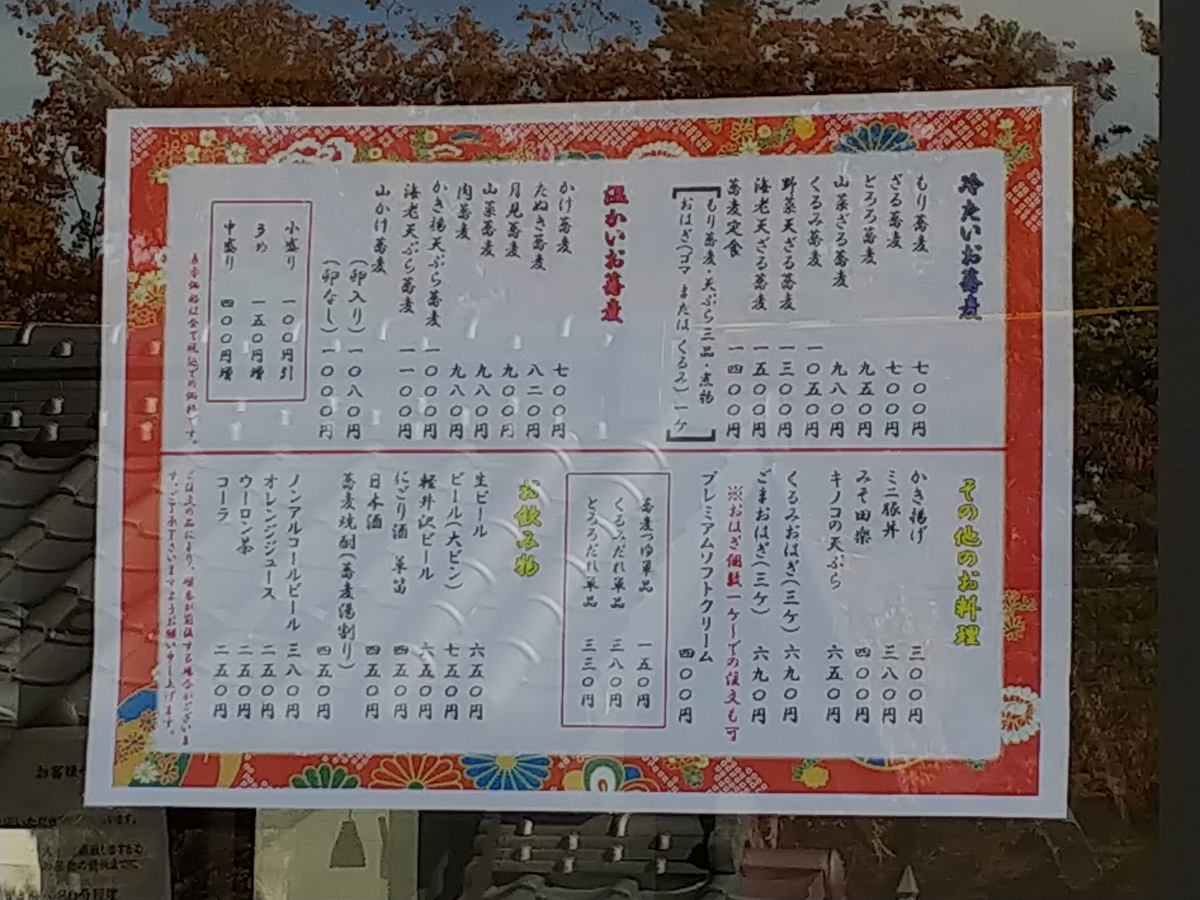 冷たいお蕎麦
もり蕎麦 七〇〇円
ざる蕎麦 七〇〇円
とろろ蕎麦 九五〇円
山菜ざる蕎麦 九八〇円
くるみ蕎麦 一〇五〇円
野菜天ざる蕎麦 一三〇〇円
海老天ざる蕎麦 一五〇〇円
蕎麦定食 一四〇〇円
もり蕎麦・天ぷら三品・煮物
おはぎ(ゴマ または くるみ)一ケ
温かいお蕎麦
かけ蕎麦 七〇〇円
たぬき蕎麦 八二〇円
月見蕎麦 九〇〇円
山菜蕎麦 九八〇円
肉蕎麦 九八〇円
かき揚天ぷら蕎麦 一〇〇〇円
海老天ぷら蕎麦 一一〇〇円
山かけ蕎麦
(卵入り) 一〇八〇円
(卵なし) 一〇〇〇円
小盛り 一〇〇円引
うめ 一五〇円増
中盛り 四〇〇円増
表示価格は全て税込での価格です。
その他のお料理
かき揚げ 三〇〇円
ミニ豚丼 三八〇円
みそ田楽 四〇〇円
キノコの天ぷら 六五〇円
くるみおはぎ(三ケ) 六九〇円
ごまおはぎ(三ケ) 六九〇円
※おはぎ個数一ケ〜での注文も可
プレミアムソフトクリーム 四〇〇円
蕎麦つゆ単品 一五〇円
くるみだれ単品 三八〇円
とろろだれ単品 三三〇円
お飲み物
生ビール 六五〇円
ビール(大ビン) 七五〇円
軽井沢ビール 六五〇円
にごり酒 草笛 四五〇円
日本酒 四五〇円
蕎麦焼酎(蕎麦湯割り) 四五〇円
ノンアルコールビール 三八〇円
オレンジジュース 二五〇円
ウーロン茶 二五〇円
コーラ 二五〇円
ご注文の品により、順番が前後する場合がございま
す。ご了承下さいますようお願い申し上げます。
お客様